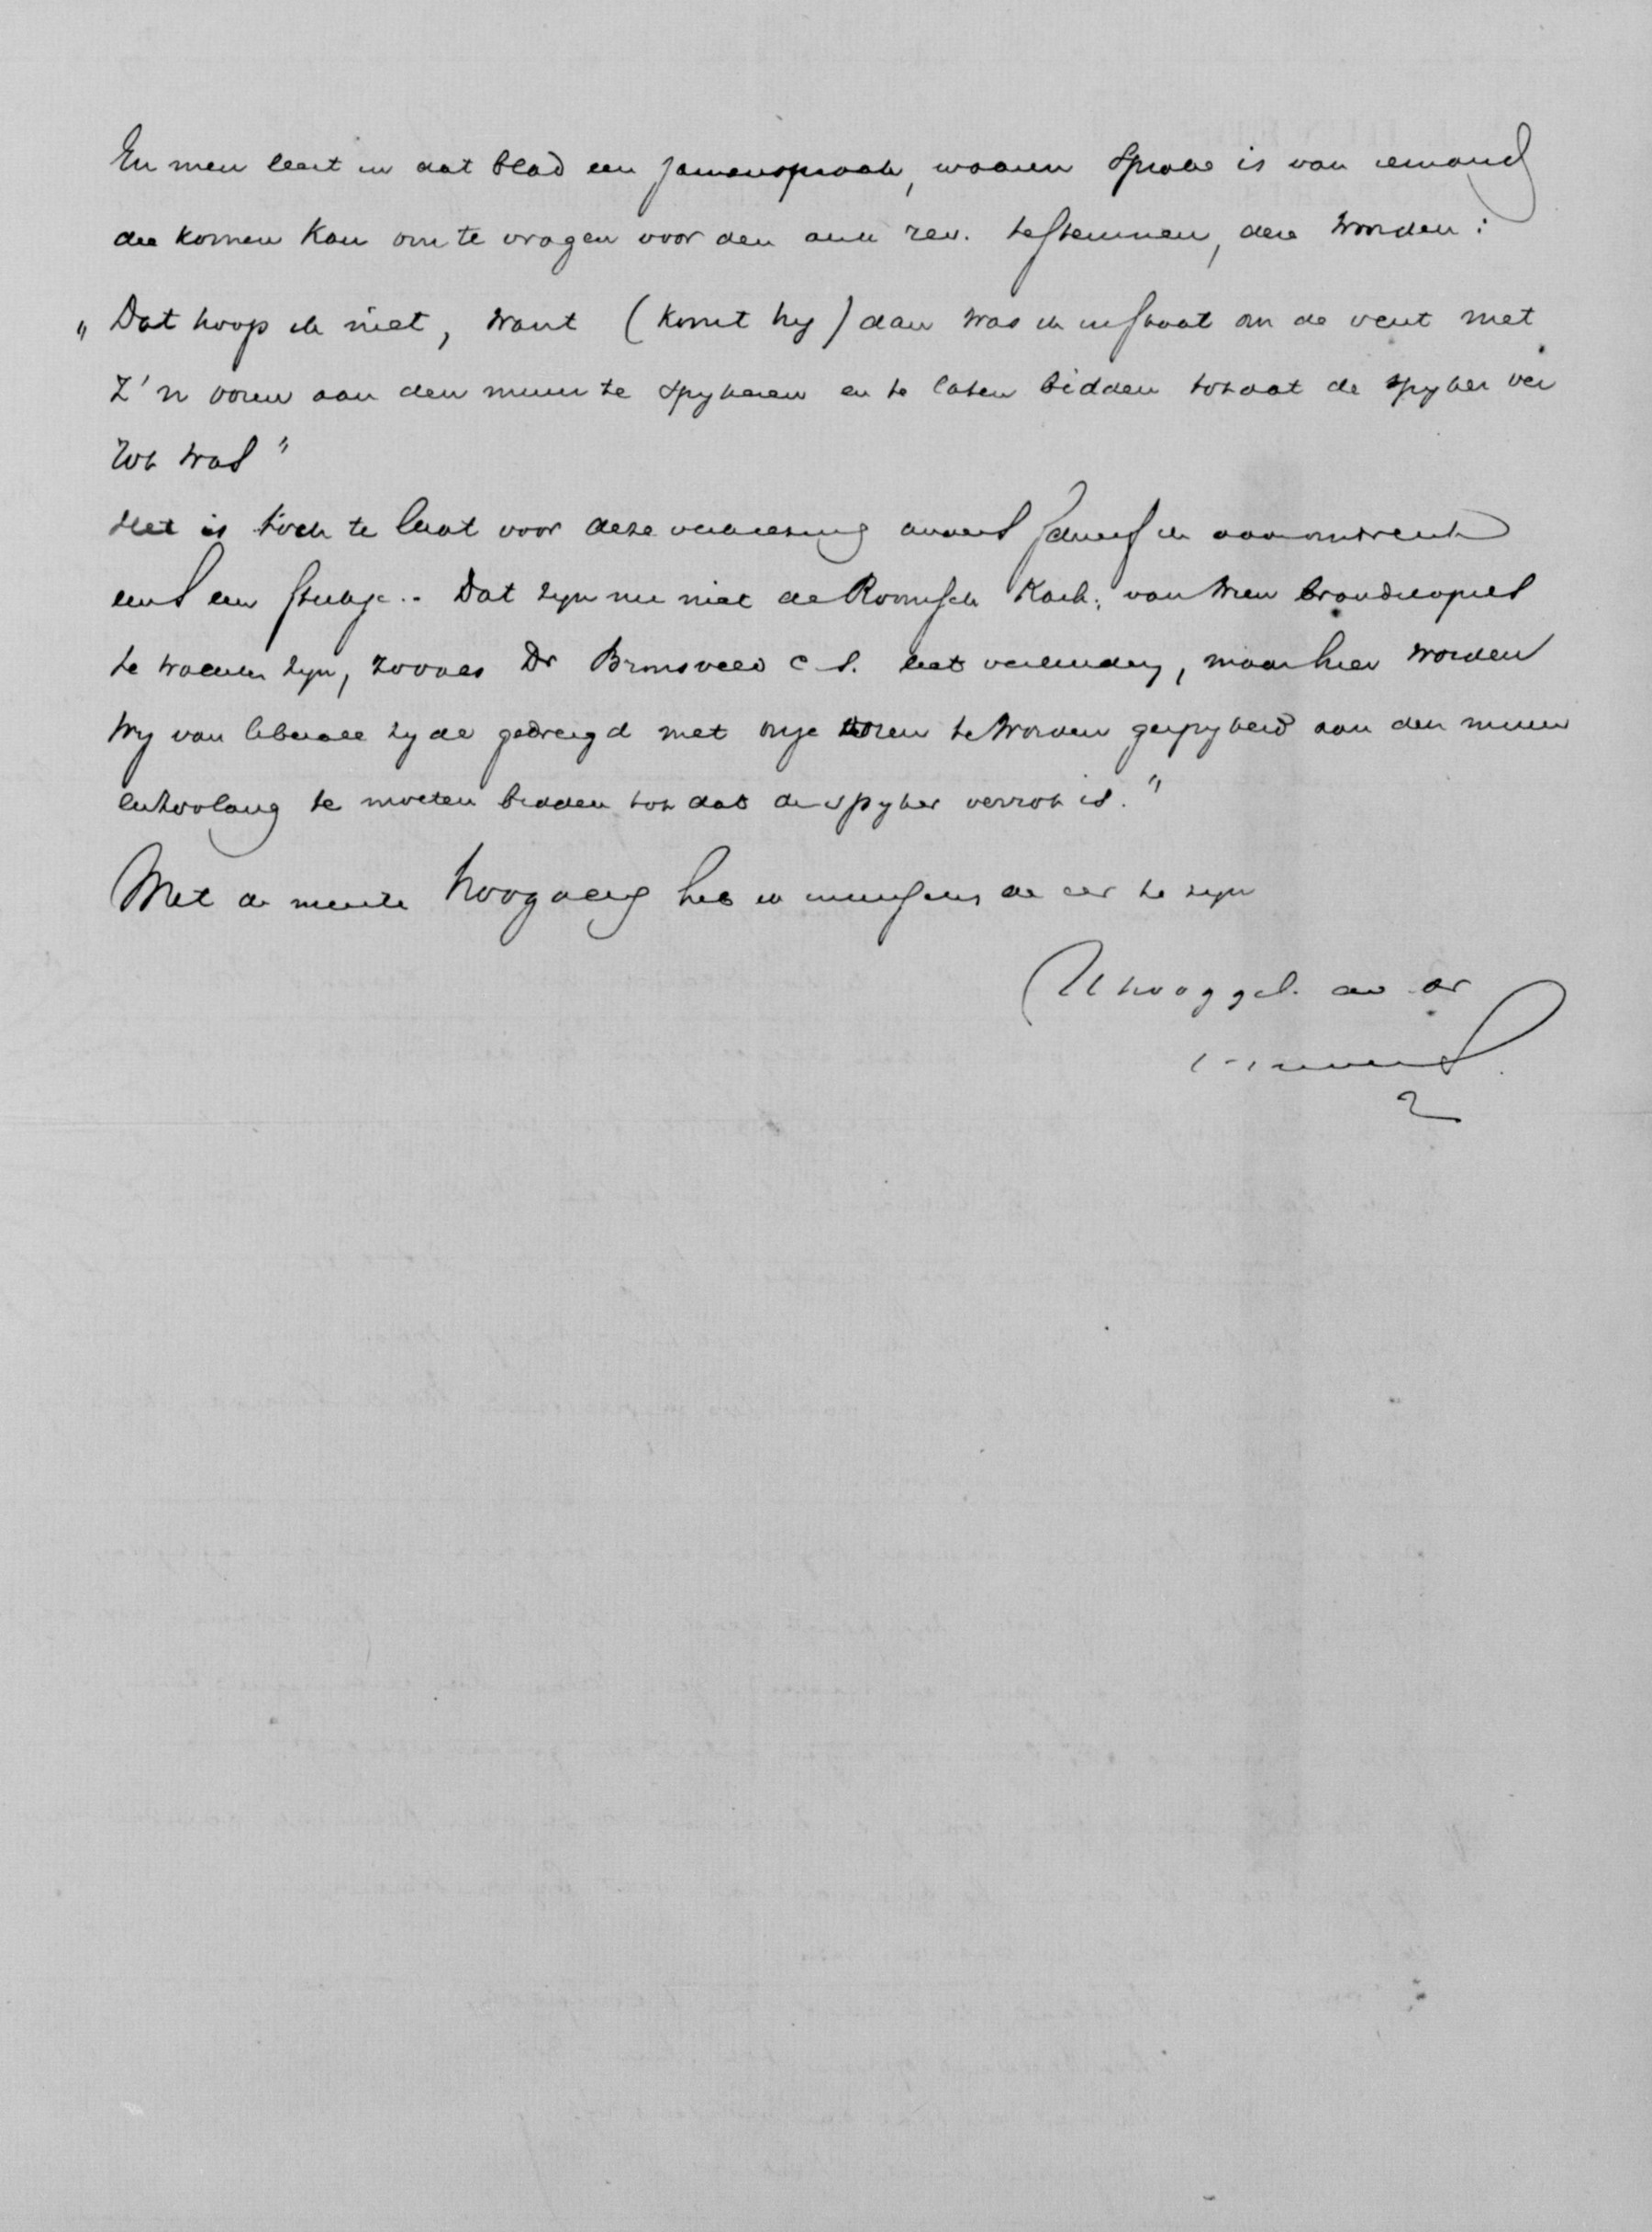 En men leest in dat blad een samenspraak, waarin sprake is van iemand
die komen kan om te vragen voor den anti rev. te stemmen, deze woorden:
„Dat hoop ik niet, want (komt hy) dan was ik in staat om de vent met
z'n ooren aan den muur te spykeren en te laten bidden tot dat de spyker ver
rot was"
Het is toch te laat voor deze verkiezing anders schreef ik daaromtrent
eens een stukje.. Dat zyn nu niet de Roomsch Kath. van wien brandstapels
te wachten zyn, zooals Dr Bronsveld c.s. liet verkondig, maar hier worden
wy van liberale zyde gedreigd met onze ooren te worden gespykerd aan den muur
en zoolang te moeten bidden tot dat de spyker verrot is."
Met de meeste hoogach heb ik de eer te zyn
U hooggel. dw dr